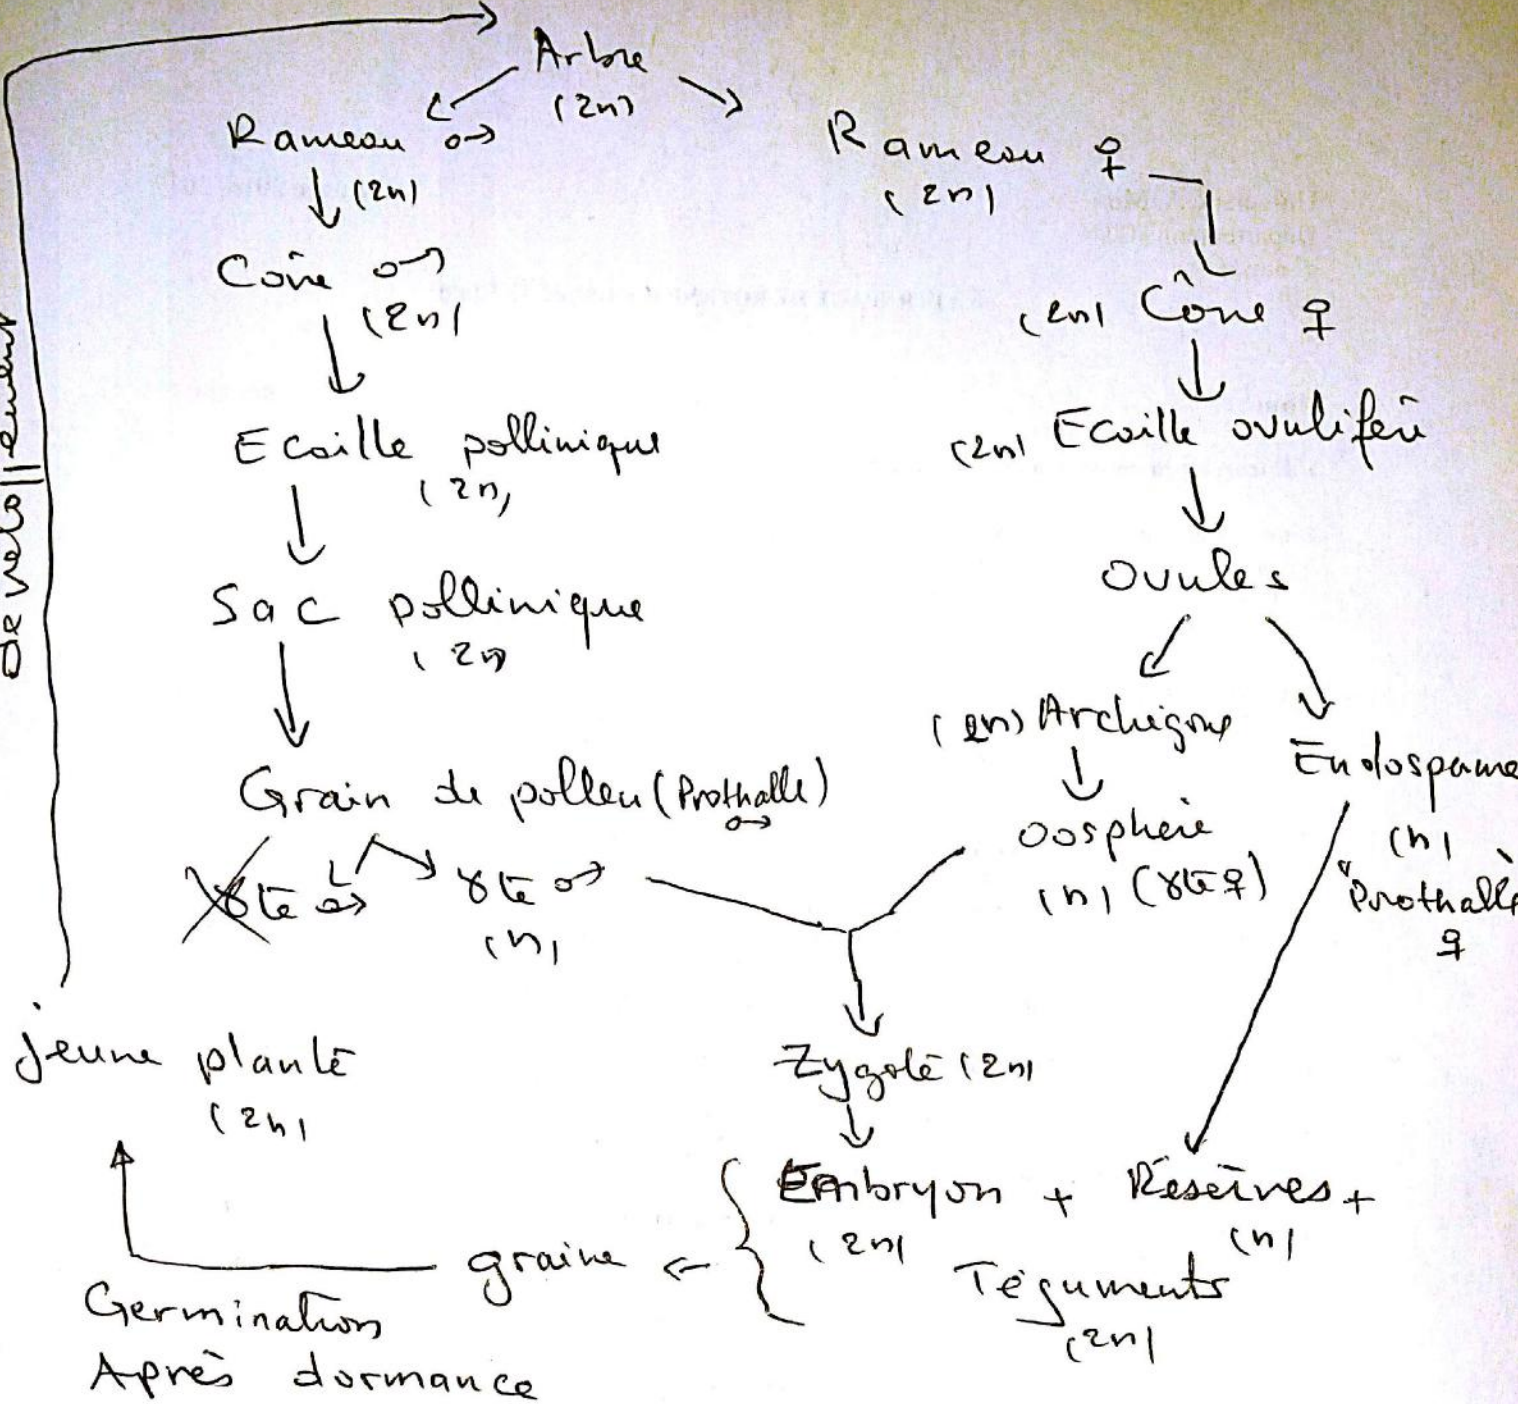 Arbre
(2n)
Rameau ♂
(2n)
Cône ♂
(2n)
Ecaille pollinique
(2n)
Sac pollinique
(2n)
Grain de pollen (Prothalle)
♂
γte ♂
γte ♂
(n)
Rameau ♀
(2n)
(2n) Cône ♀
(2n) Ecaille ovulifère
Ovules
(2n) Archégone
Oosphère
(n) (γte ♀)
Endosperme
(n)
"Prothalle
♀
Zygote (2n)
Embryon + Réserves +
(2n) (n)
Téguments
(2n)
graine
Germination
Après dormance
jeune plante
(2n)
développement